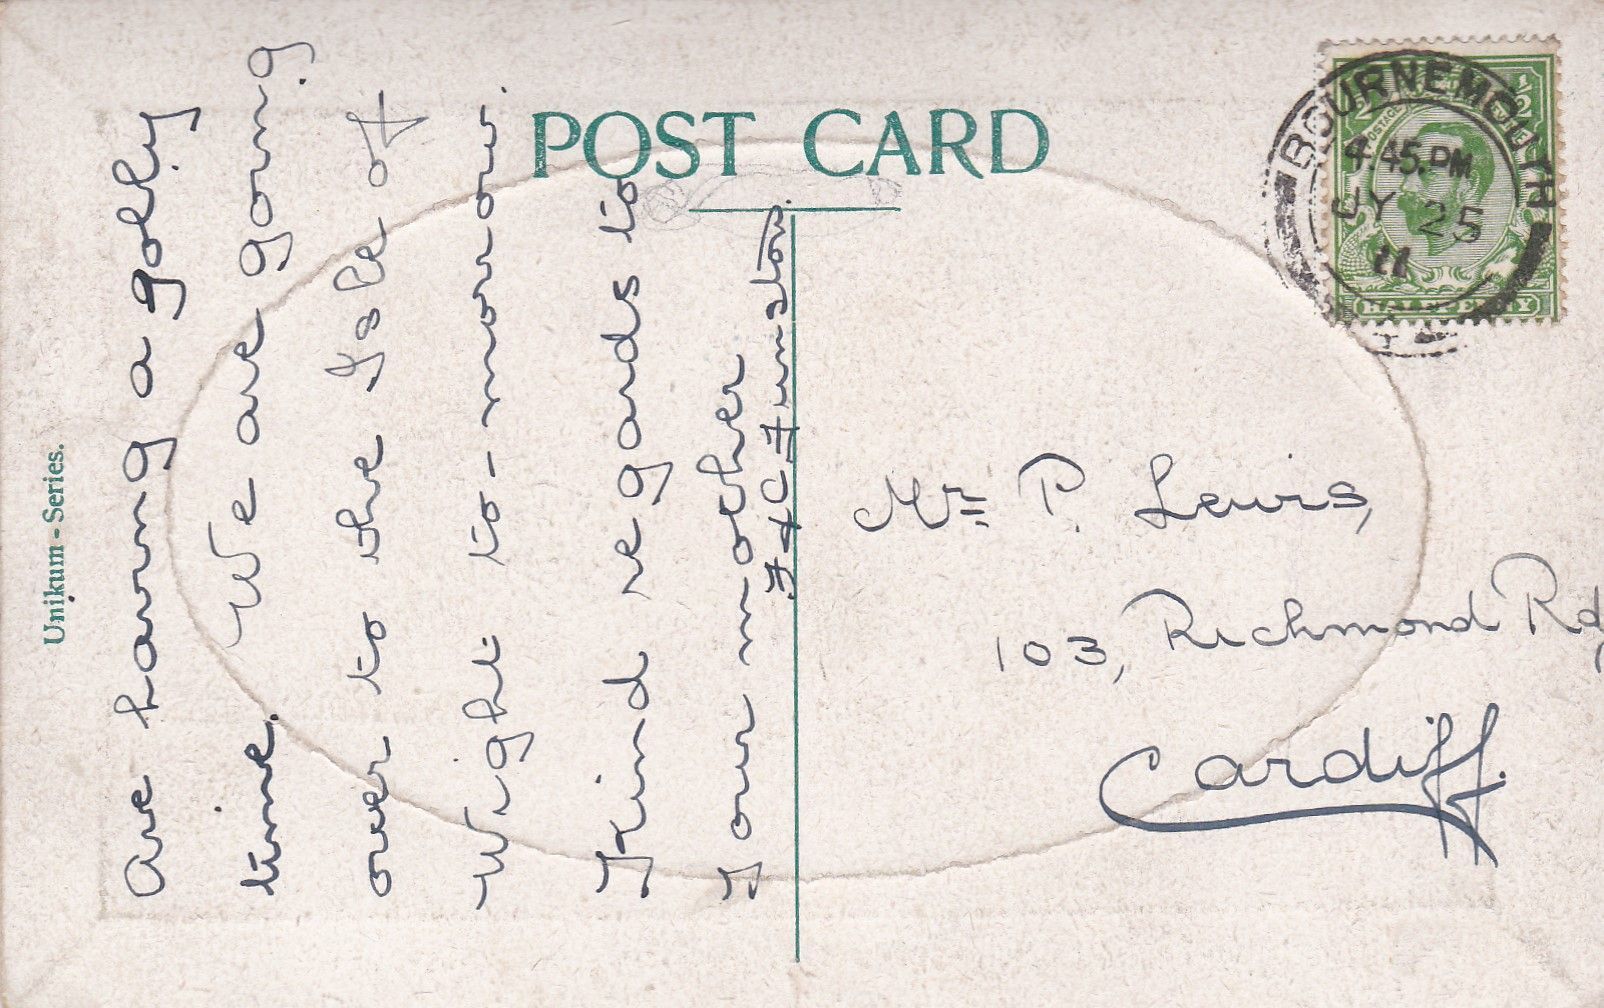 Unikum - Series.
POST CARD
are having a golly
time. We are going
over to the Isle of
Wight to-morrow.
Kind regards to
your mother
F & C Funston.
BOURNEMOUTH
4.45.PM
JY 25
11
POSTAGE
HALFPENNY
Mr P. Lewis,
103, Richmond Rd,
Cardiff.